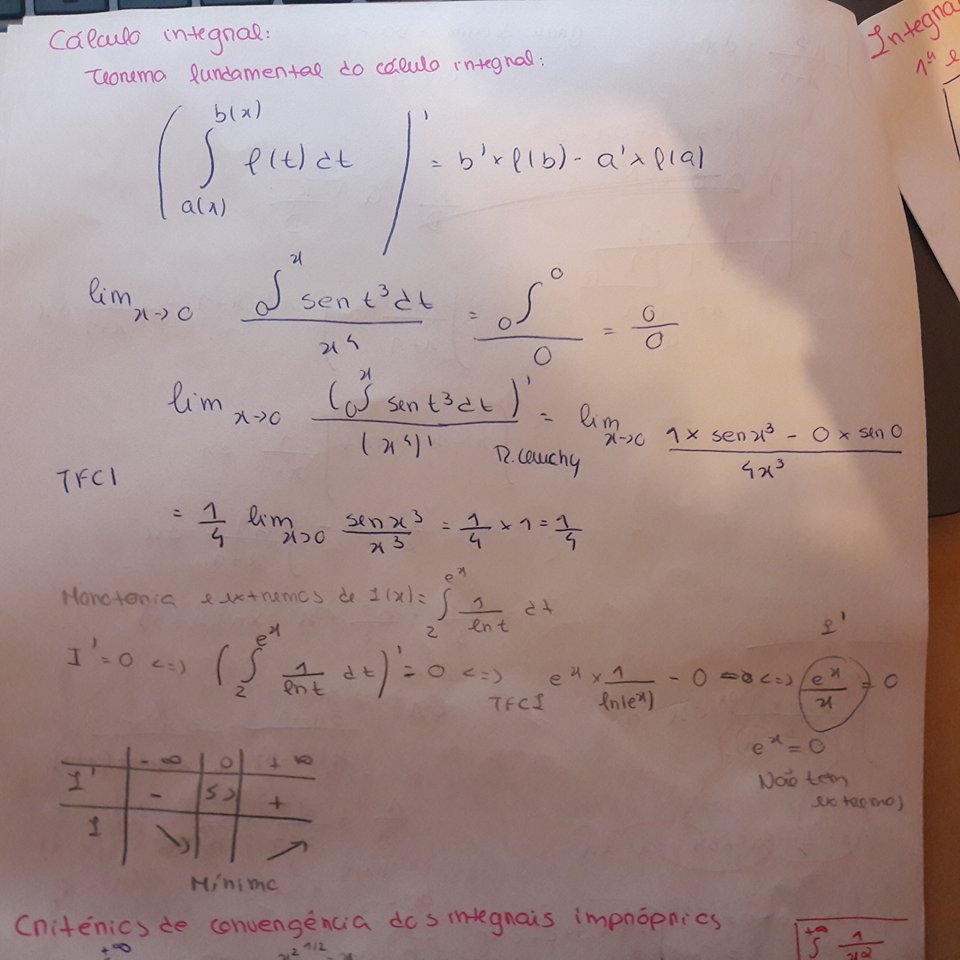 Cálculo integral:
Teorema fundamental do cálculo integral:
(∫_{a(x)}^{b(x)} f(t) dt)' = b' × f(b) - a' × f(a)
lim_{x→0} (₀∫^x sen t³ dt) / x⁴ = ₀∫⁰ / 0 = 0/0
lim_{x→0} (₀∫^x sen t³ dt)' / (x⁴)' = lim_{x→0} (1 × sen x³ - 0 × sen 0) / 4x³
R. Cauchy
TFCI
= 1/4 lim_{x→0} sen x³ / x³ = 1/4 × 1 = 1/4
Monotonia e extremos de I(x) = ∫_2^{e^x} 1/ln t dt
I'
I' = 0 <=> (∫_2^{e^x} 1/ln t dt)' = 0 <=> e^x × 1/ln(e^x) - 0 = 0 <=> e^x/x = 0
TFCI
e^x = 0
Não tem
extremos
-∞ | 0 | +∞
I' | - | S) | +
I | ↘ | | ↗
Mínimo
Critérios de convergência dos integrais impróprios
+∞
∫^{+∞} 1/x²
Integra
1ª